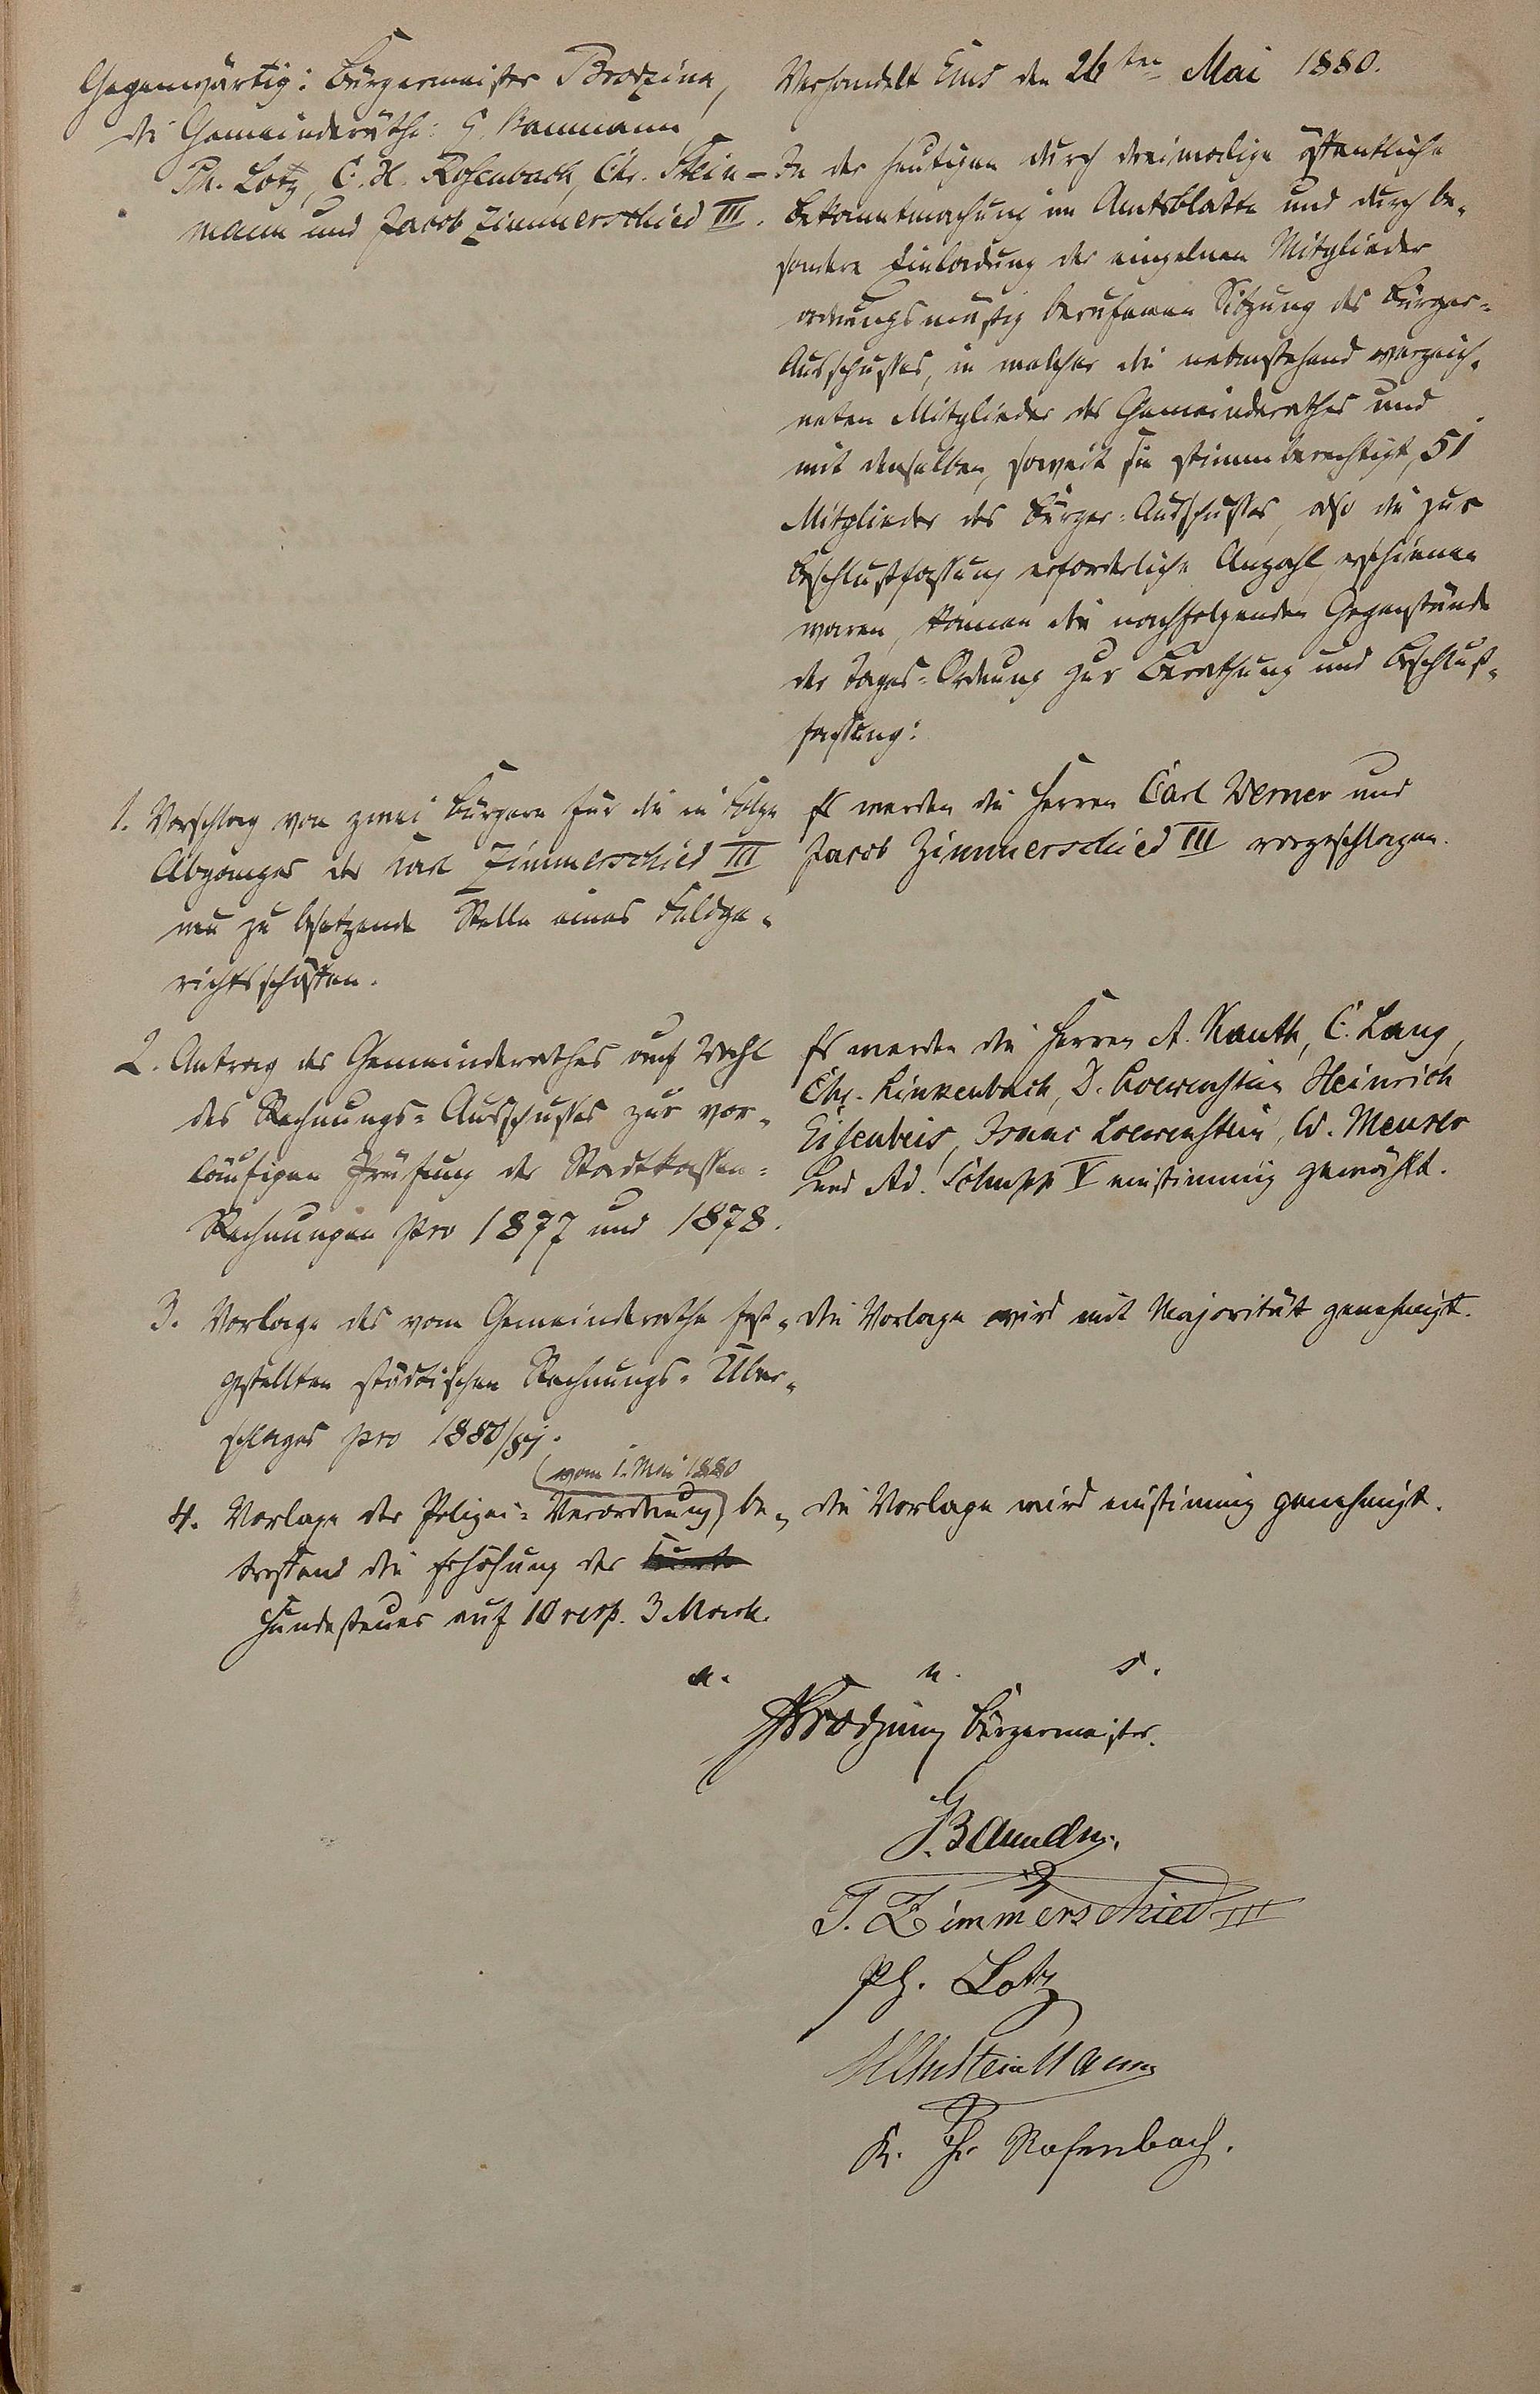 Gegenwärtig: Bürgermeister Brodzina,
die Gemeinderäthe: G. Baumann,
Ph. Lotz, C. H. Rosenbach, Chr. Stein-
mann und Jacob Zimmerschied III.
Verhandelt Ems den 26ten Mai 1880.
In der heutigen durch dreimalige öffentliche
Bekanntmachung im Amtsblatte und durch be-
sondere Einladung der einzelnen Mitglieder
ordnungsmäßig berufenen Sitzung des Bürger-
Ausschusses, in welcher die nebenstehend verzeich-
neten Mitglieder des Gemeinderathes und
mit denselben, soweit sie stimmberechtigt, 51
Mitglieder des Bürger-Ausschusses, also die zur
Beschlußfassung erforderliche Anzahl, erschienen
waren, kamen die nachfolgenden Gegenstände
der Tages-Ordnung zur Berathung und Beschluß-
fassung:
1. Vorschlag von zwei Bürgern für die in Folge
Abganges des Karl Zimmerschied III
neu zu besetzende Stelle eines Feldge-
richtsschöffen.
Es werden die Herren Carl Werner und
Jacob Zimmerschied III vorgeschlagen.
2. Antrag des Gemeinderathes auf Wahl
des Rechnungs-Ausschusses zur vor-
läufigen Prüfung der Stadtkassen-
Rechnungen pro 1877 und 1878.
Es werden die Herren A. Kauth, C. Lang,
Chr. Linkenbach, D. Loewenstein, Heinrich
Eisenbeis, Isaac Loewenstein, W. Meuser
und Ad. Schupp V einstimmig gewählt.
3. Vorlage des vom Gemeinderathe fest-
gestellten städtischen Rechnungs-Über-
schlages pro 1880/81.
die Vorlage wird mit Majorität genehmigt.
vom 1. Mai 1880
4. Vorlage der Polizei-Verordnung be-
treffend die Erhöhung der
Hundesteuer auf 10 resp. 3 Mark.
die Vorlage wird einstimmig genehmigt.
a. u. s.
Brodzina Bürgermeister.
G. Baumann.
J. Zimmerschied III
Ph. Lotz
Chr Steinmann
K. H. Rosenbach.